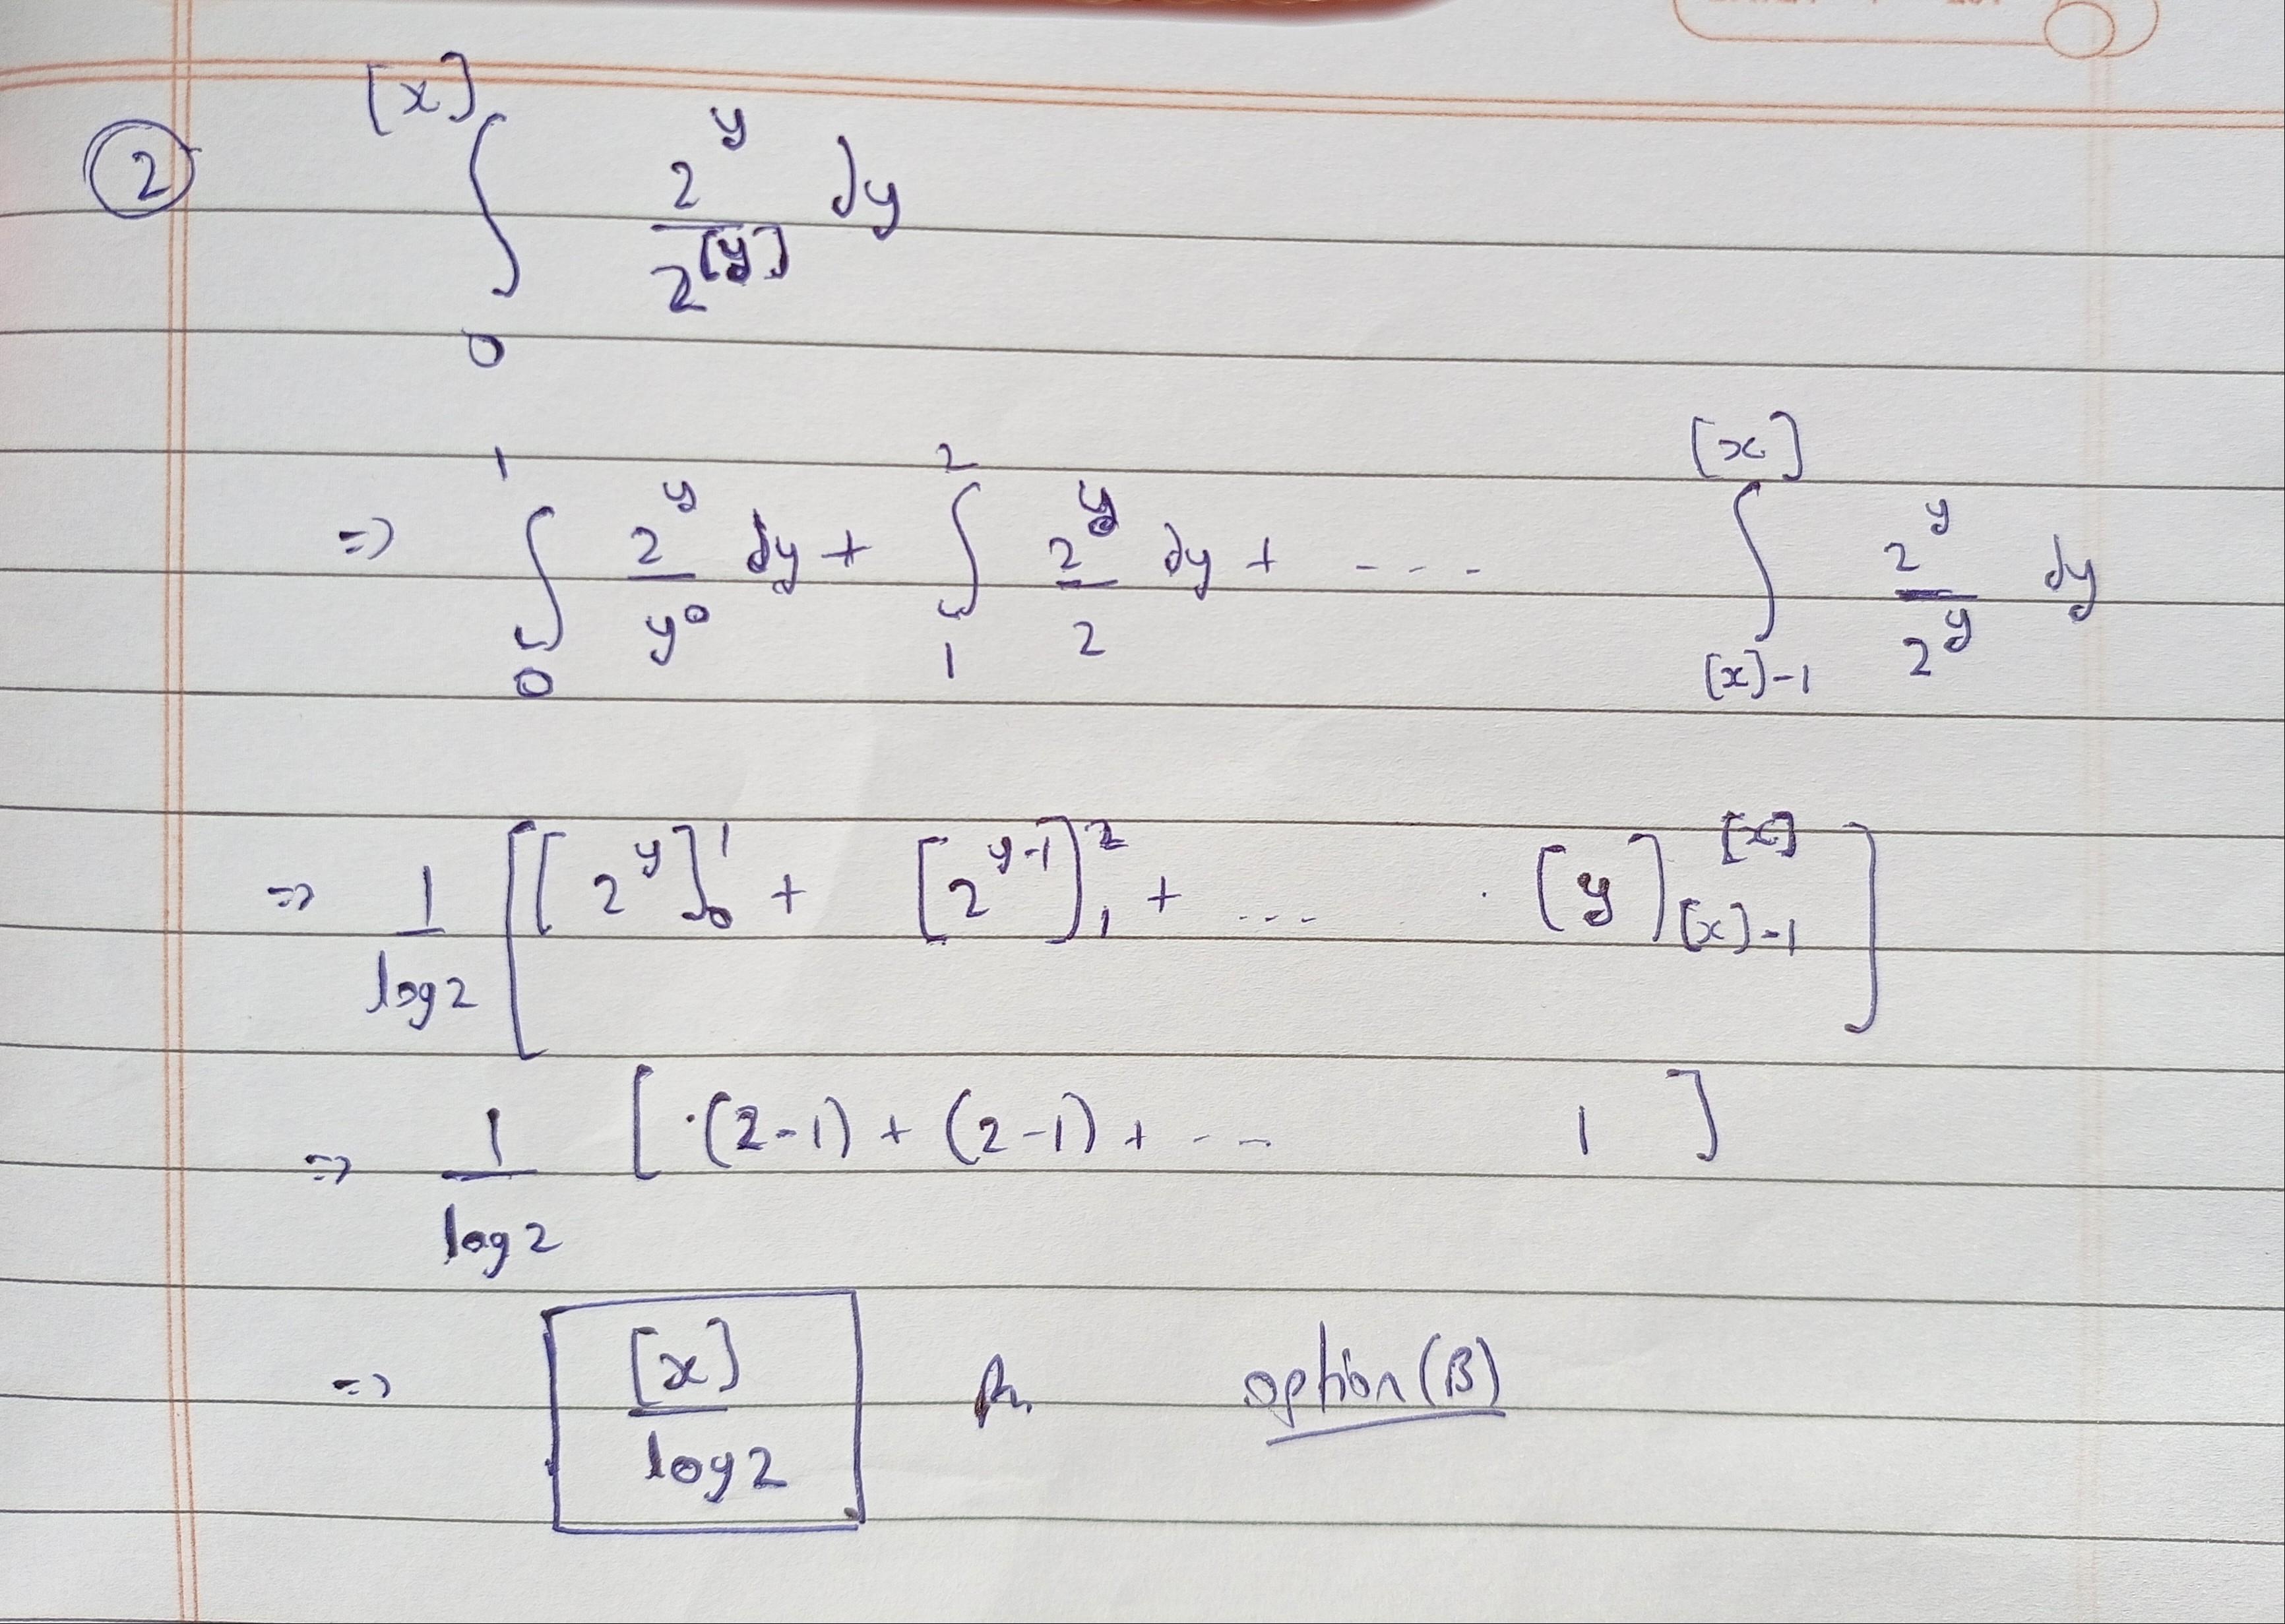 ② ∫_0^[x] 2^y / 2^[y] dy
=> ∫_0^1 2^y / y^0 dy + ∫_1^2 2^y / 2 dy + - - - ∫_[x]-1^[x] 2^y / 2^y dy
=> 1 / log2 [ [2^y]_0^1 + [2^y-1]_1^2 + ... . [y]_[x]-1^[x] ]
=> 1 / log2 [ .(2-1) + (2-1) + - - 1 ]
=> [x] / log2 option(B)